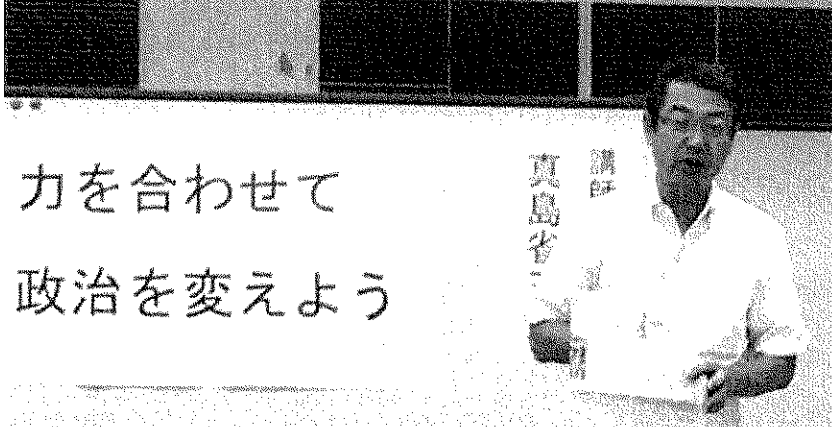 力を合わせて
政治を変えよう
講師
真島省